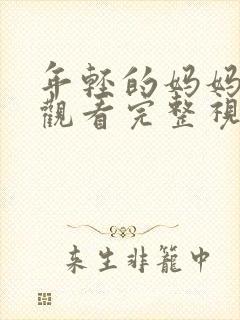 年轻的妈妈
觀看完整視
来生非籠中